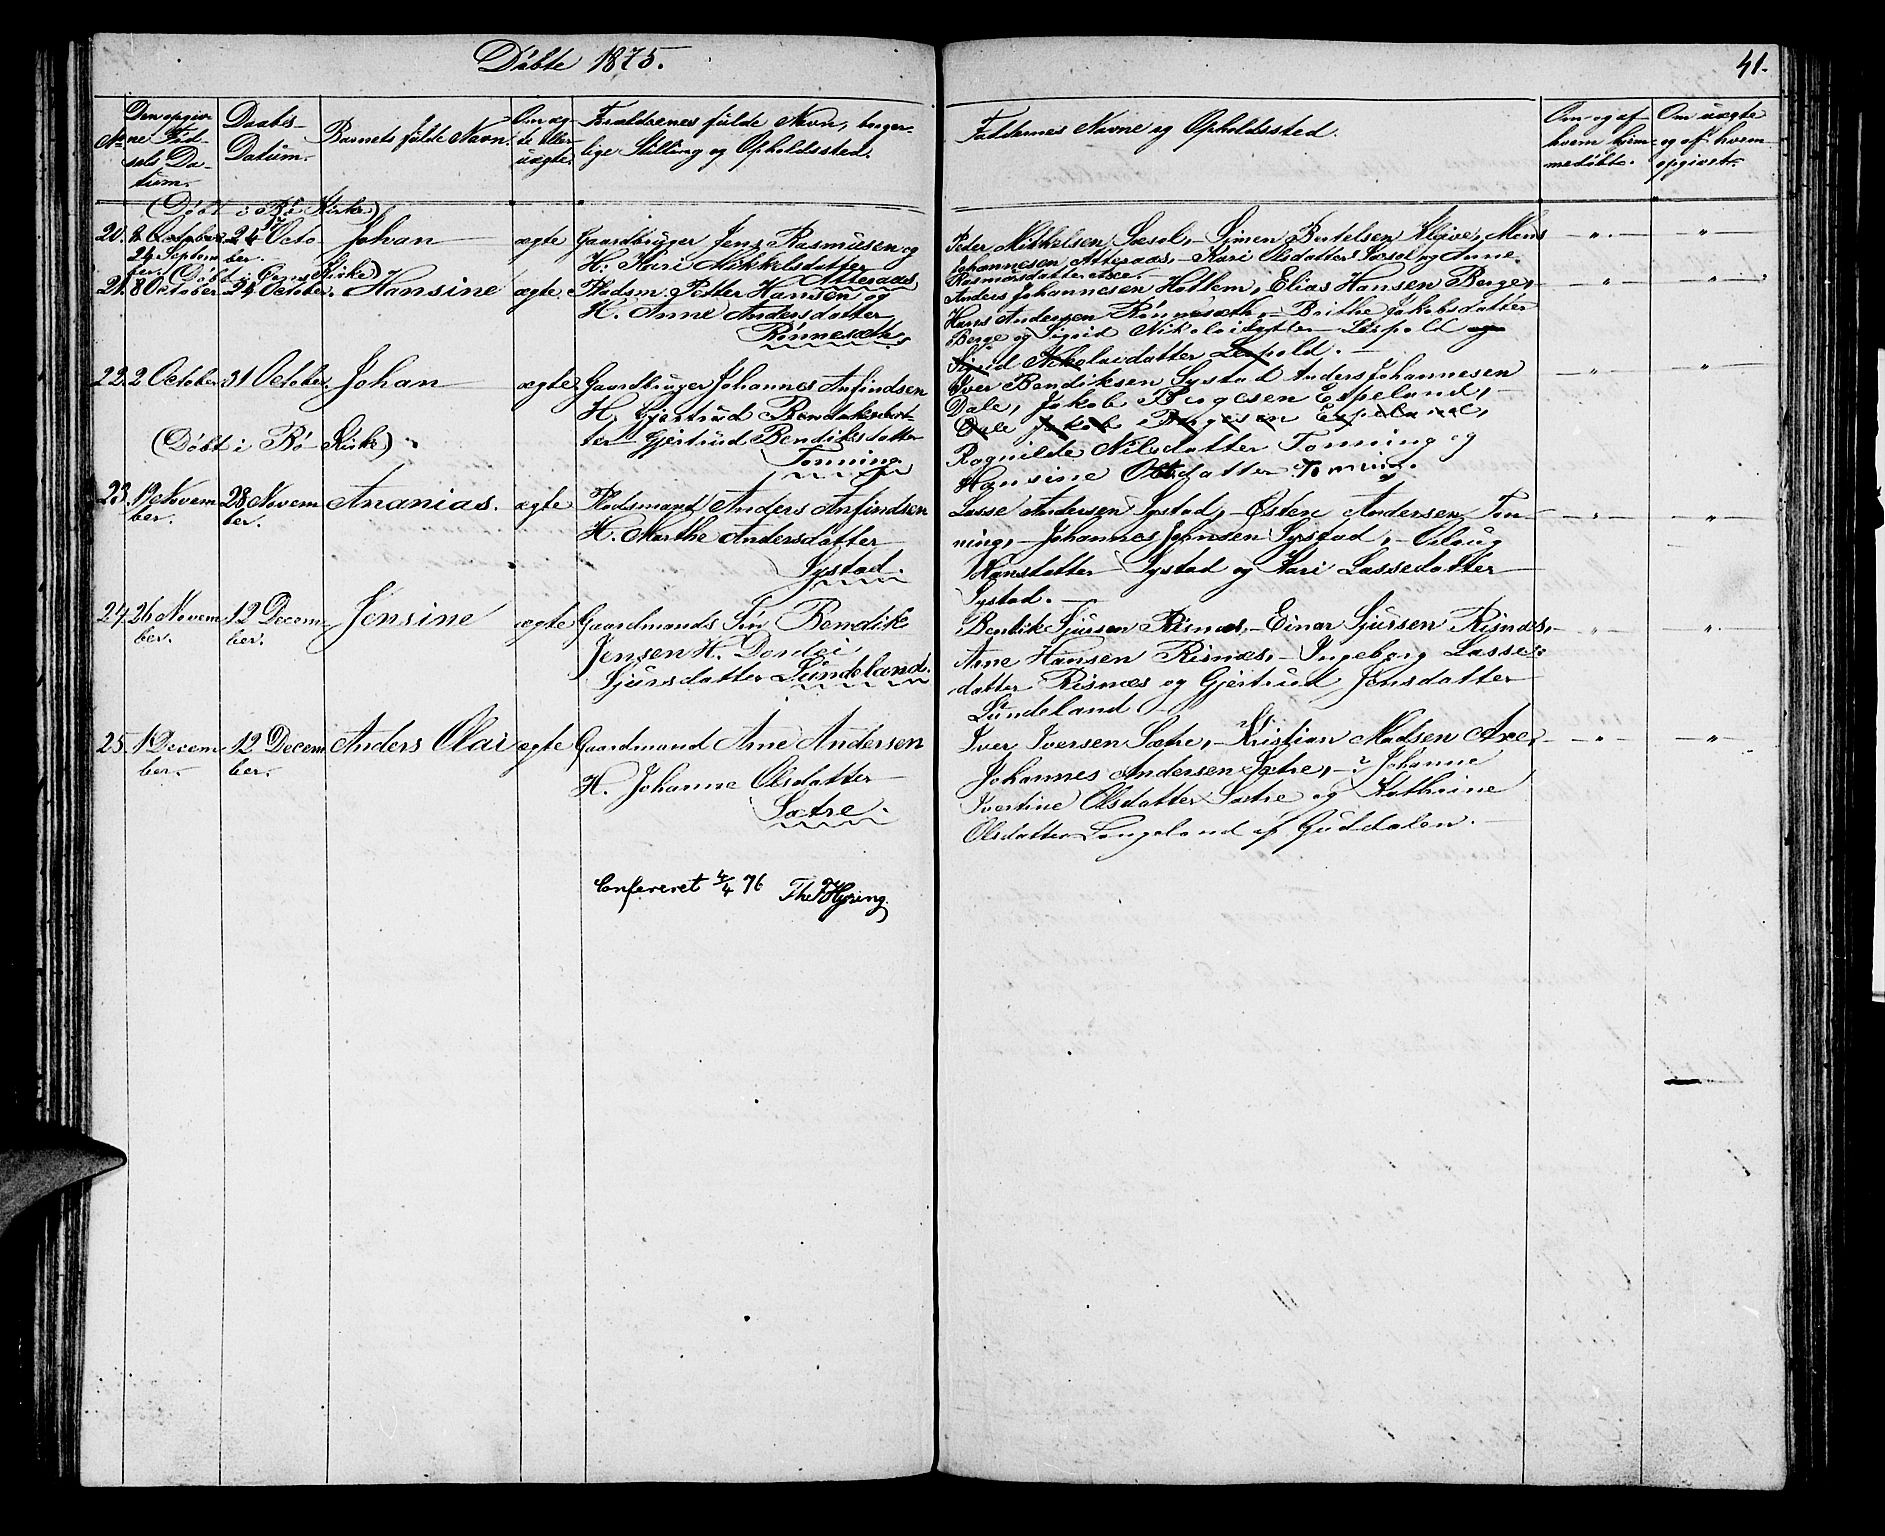 Döbte 1875.
41.
No
Den opgivne Födsels Datum.
Daabs-Datum.
Barnets fulde Navn.
Om ægte eller uægte.
Forældrenes fulde Navn, borgerlige Stilling og Opholdssted.
Faddernes Navne og Opholdssted.
Om og af hvem hjemmedöbt.
Om uægte og af hvem opgivet.
(Döbt i Bö Kirke)
20. 24 September. Octo-
ber.
Johan
ægte
Gaardbruger Jens Rasmusen og
H: Kari Mikkelsdatter
Atteraas
Peder Mikkelsen Sæsol, - Simen Bertelsen Kleive, Mons
Johannesen Atteraas, - Kari Olsdatter Sæsol og Anne
Rasmusdatter
(Döbt i Kirke)
21. 8 October 24 October. Hansine
ægte
Pladsm. Petter Hansen og
H. Anne Andersdatter
Rönneseth
Anders Johannesen Hatlem, Elias Hansen Berge,
Hans Andersen Rönneseth, - Brithe Jakobsdatter
Berge og Sigrid Nikolaidatter Leipold og
Sigrid Nikolaidatter Leipold. -
22. 2 October 31 October. Johan
ægte
Gaardbruger Johannes Anfindsen
H. Gjertrud Bendiksdat-
ter Gjertrud Bendiksdatter
Tonning
(Döbt i Bö Kirke)
Iver Bendiksen Systad Anders Johannesen
Dale, Jakob Birgesen Espeland,
Dale Jakob Birgesen Espeland,
Ragnilde Nilsdatter Tonning og
Hansine Olsdatter Tonning.
23. 19 Novem-
ber.
28 Novem
ber.
Ananias.
ægte
Pladsmand Anders Anfindsen
H. Marthe Andersdatter
Systad.
Lasse Andersen Systad, - Östen Andersen Ton-
ning, - Johannes Jensen Systad, - Oilaug
Hansdatter Systad og Kari Lassedatter
Systad. -
24. 26 Novem
ber.
12 Decem-
ber.
Jensine
ægte
Gaardmands Sön Bendik
Jensen H. Dordei
Sjursdatter Lundeland.
Bendik Sjursen Risnæs, - Einar Sjursen Risnæs,
Arne Hansen Risnæs, - Ingeborg Lasse-
datter Risnæs og Gjertrud Jensdatter
Lundeland -
25. 1 Decem-
ber.
12 Decem
ber.
Anders Olai
ægte
Gaardmand Arne Andersen
H. Johanne Olsdatter
Sætre.
Iver Iversen Sætre, - Kristian Madsen Axe,
Johannes Andersen Sætre, - Johanne
Ivertine Olsdatter Sætre og Kathrine
Olsdatter Langeland af Guddalen. -
Confereret 4/4 76